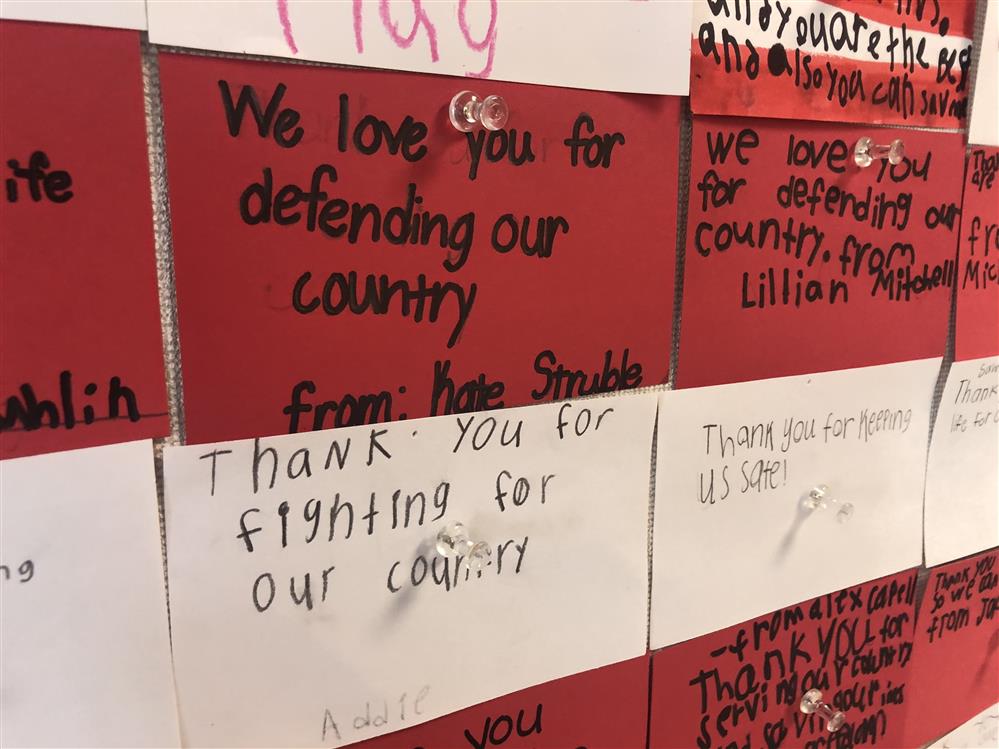 Flag
and you are the Best
and also you can save
ife
We love you for
defending our
country
from: Kate Struble
We love you
for defending our
country. from
Lillian Mitchell
are
Thank you for
fighting for
our country
Addie
Thank you for keeping
us safe!
Thank
life for
ng
-from alex capell
Thank you for
serving our country
Thank you
so we can
from
you